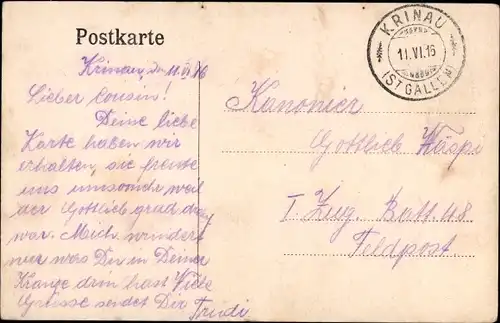 Postkarte
KRINAU
11.VI.16
(ST GALLEN)
Krinau, den 11.VI.16
Lieber Cousin!
Deine liebe
Karte haben wir
erhalten, sie freute
uns umsomehr weil
der Gottlieb grad da
war. Mich wundert
nur was Du in Deiner
Krange drin hast Viele
Grüsse sendet Dir
Trudi
Kanonier
Gottlieb
I. Zug. Batt. 48
Feldpost.